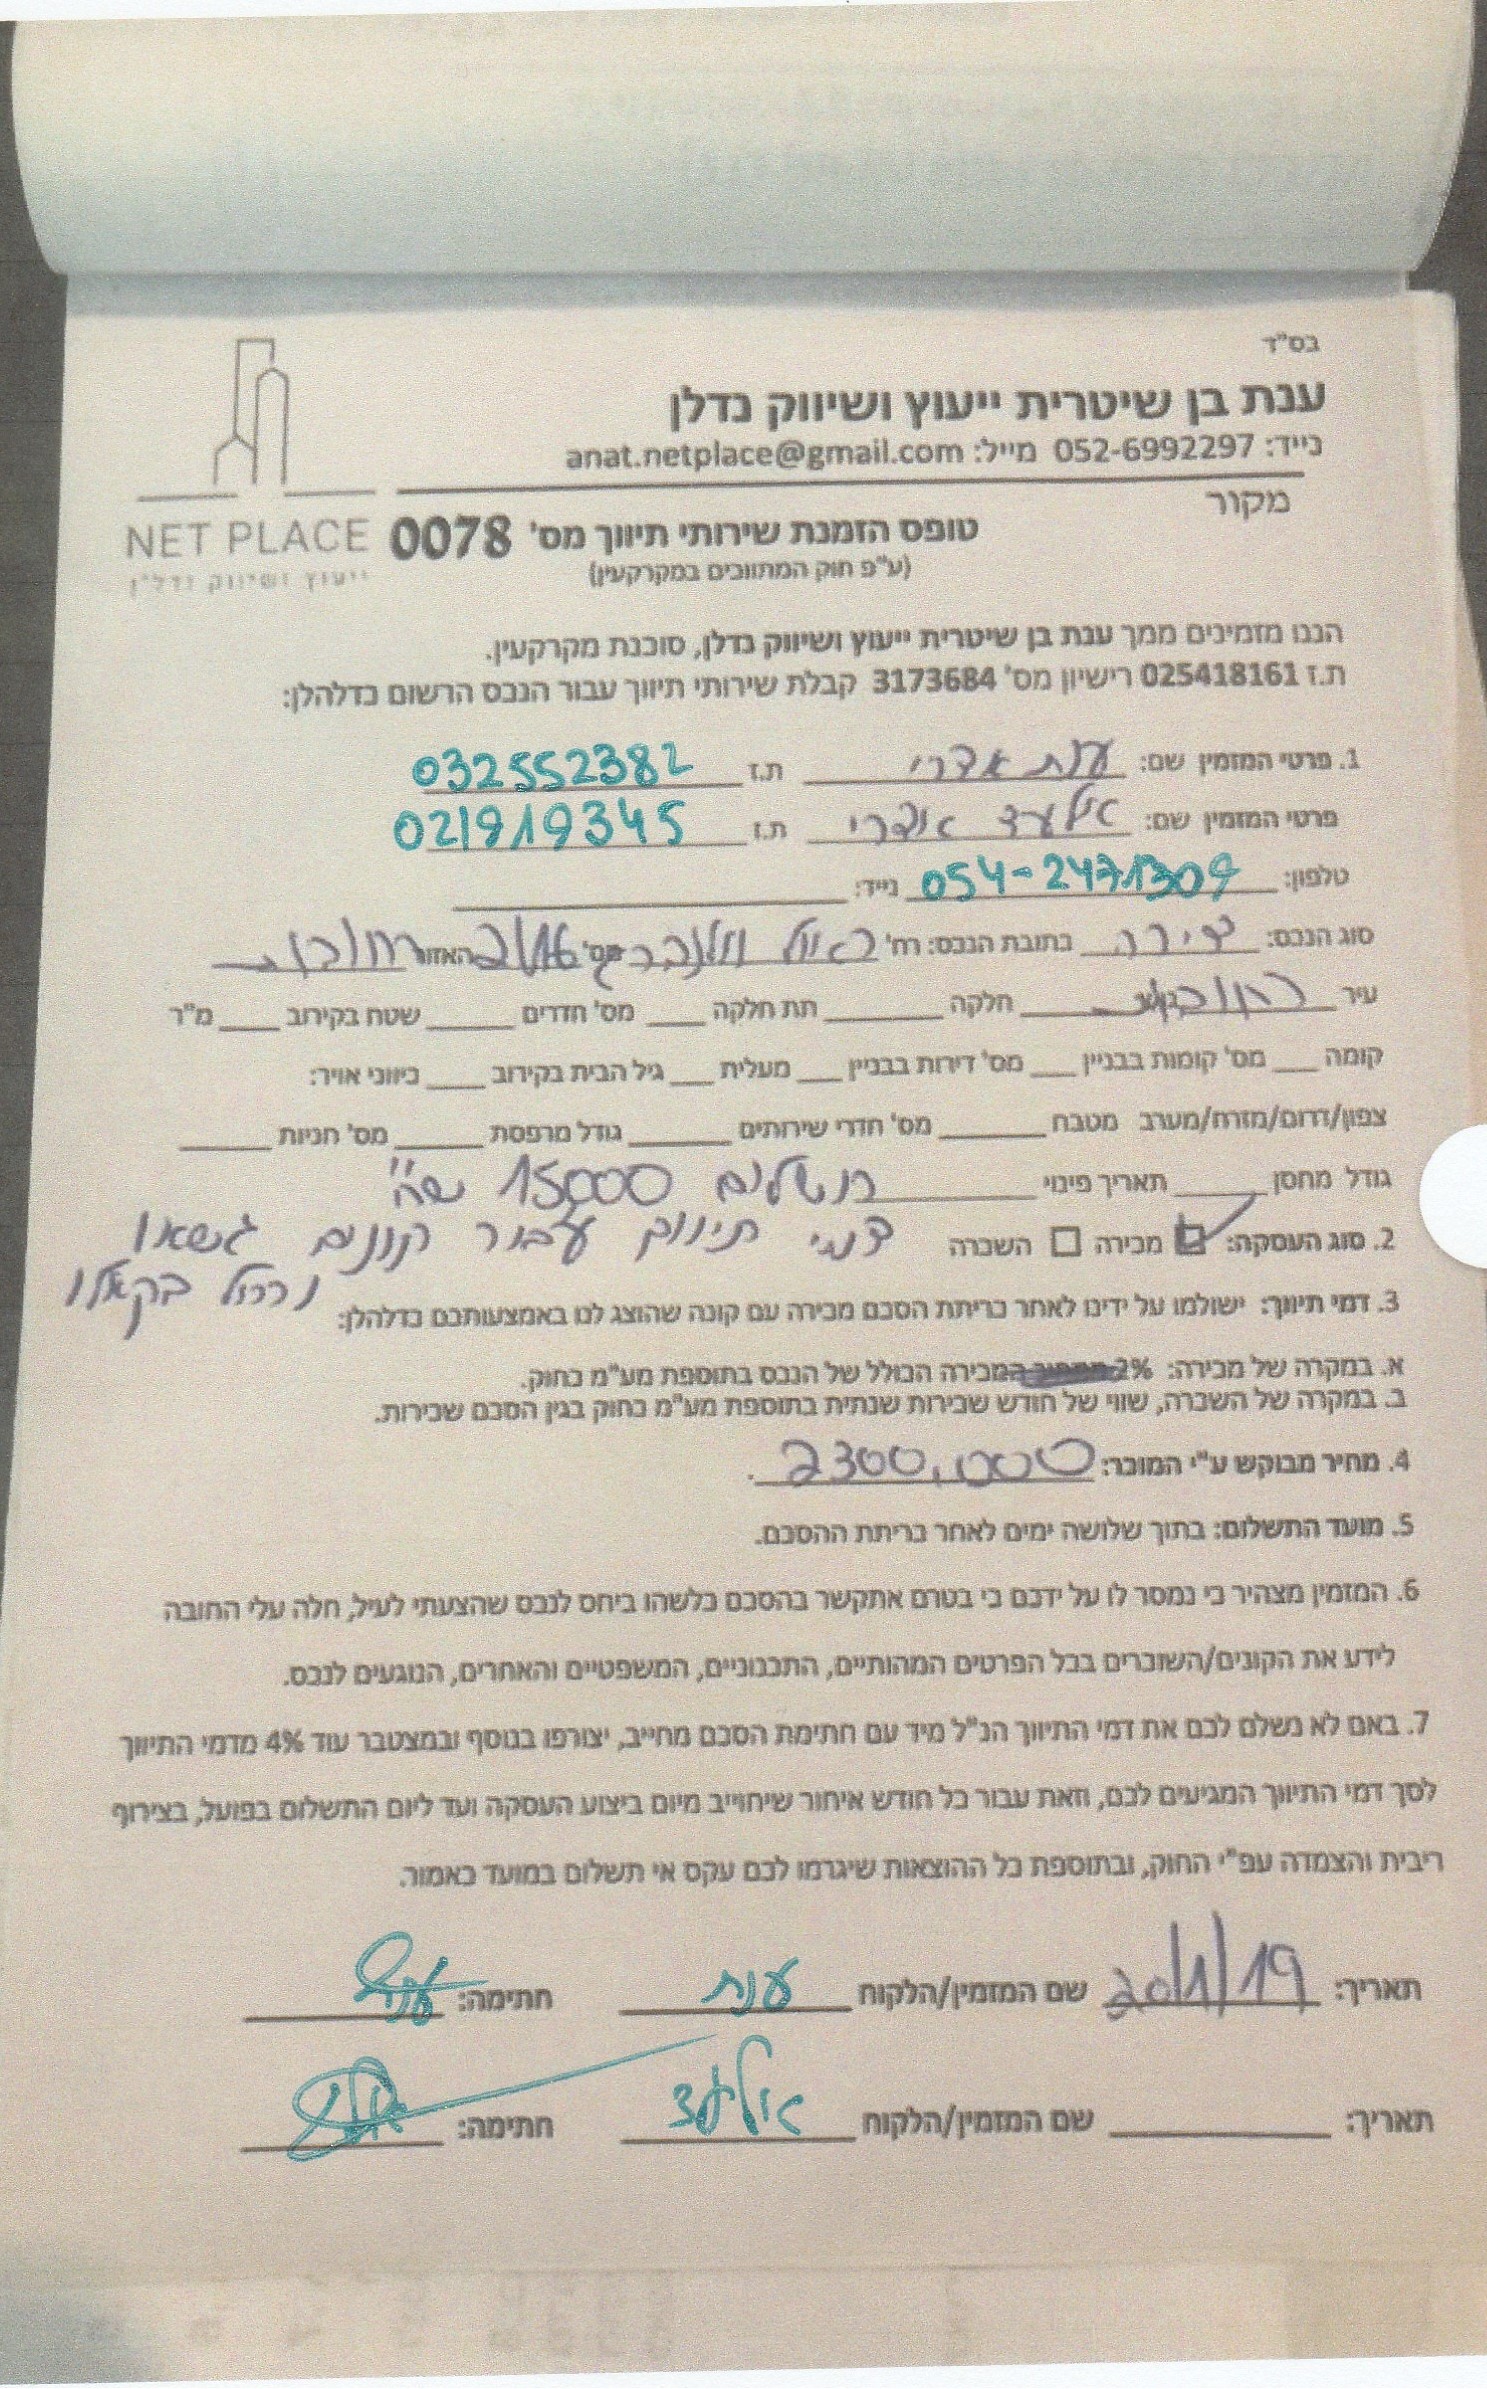 בס"ד
ענת בן שיטרית ייעוץ ושיווק נדלן
נייד: 052-6992297 מייל: anat.netplace@gmail.com
מקור
NET PLACE
ייעוץ ושיווק נדל"ן
טופס הזמנת שירותי תיווך מס' 0078
(ע"פ חוק המתווכים במקרקעין)
הננו מזמינים ממך ענת בן שיטרית ייעוץ ושיווק נדלן, סוכנת מקרקעין.
ת.ז 025418161 רישיון מס' 3173684 קבלת שירותי תיווך עבור הנכס הרשום כדלהלן:
1. פרטי המזמין שם: ענת אדרי ת.ז 032552382
פרטי המזמין שם: אלעד אדרי ת.ז 021919345
טלפון: 054-2471309 נייד:
סוג הנכס: דירה כתובת הנכס: רח' ראול ולנברג מס' האזור רחובות
עיר רחובות חלקה תת חלקה מס' חדרים שטח בקירוב מ"ר
קומה מס' קומות בבניין מס' דירות בבניין מעלית גיל הבית בקירוב כיווני אויר:
צפון/דרום/מזרח/מערב מטבח מס' חדרי שירותים גודל מרפסת מס' חניות
גודל מחסן תאריך פינוי 15000 שח
2. סוג העסקה: מכירה השכרה דמי תיווך עבור קונים
3. דמי תיווך: ישולמו על ידינו לאחר כריתת הסכם מכירה עם קונה שהוצג לנו באמצעותכם כדלהלן:
א. במקרה של מכירה: 2% ממחיר המכירה הכולל של הנכס בתוספת מע"מ כחוק.
ב. במקרה של השכרה, שווי של חודש שכירות שנתית בתוספת מע"מ כחוק בגין הסכם שכירות.
4. מחיר מבוקש ע"י המוכר: 2300,000.
5. מועד התשלום: בתוך שלושה ימים לאחר כריתת ההסכם.
6. המזמין מצהיר כי נמסר לו על ידכם כי בטרם אתקשר בהסכם כלשהו ביחס לנכס שהצעתי לעיל, חלה עלי החובה
לידע את הקונים/השוכרים בכל הפרטים המהותיים, התכנוניים, המשפטיים והאחרים, הנוגעים לנכס.
7. באם לא נשלם לכם את דמי התיווך הנ"ל מיד עם חתימת הסכם מחייב, יצורפו בנוסף ובמצטבר עוד 4% מדמי התיווך
לסך דמי התיווך המגיעים לכם, וזאת עבור כל חודש איחור שיחוייב מיום ביצוע העסקה ועד ליום התשלום בפועל, בצירוף
ריבית והצמדה עפ"י החוק, ובתוספת כל ההוצאות שיגרמו לכם עקב אי תשלום במועד כאמור.
תאריך: 20/1/19 שם המזמין/הלקוח ענת חתימה: ענת
תאריך: שם המזמין/הלקוח אלעד חתימה: